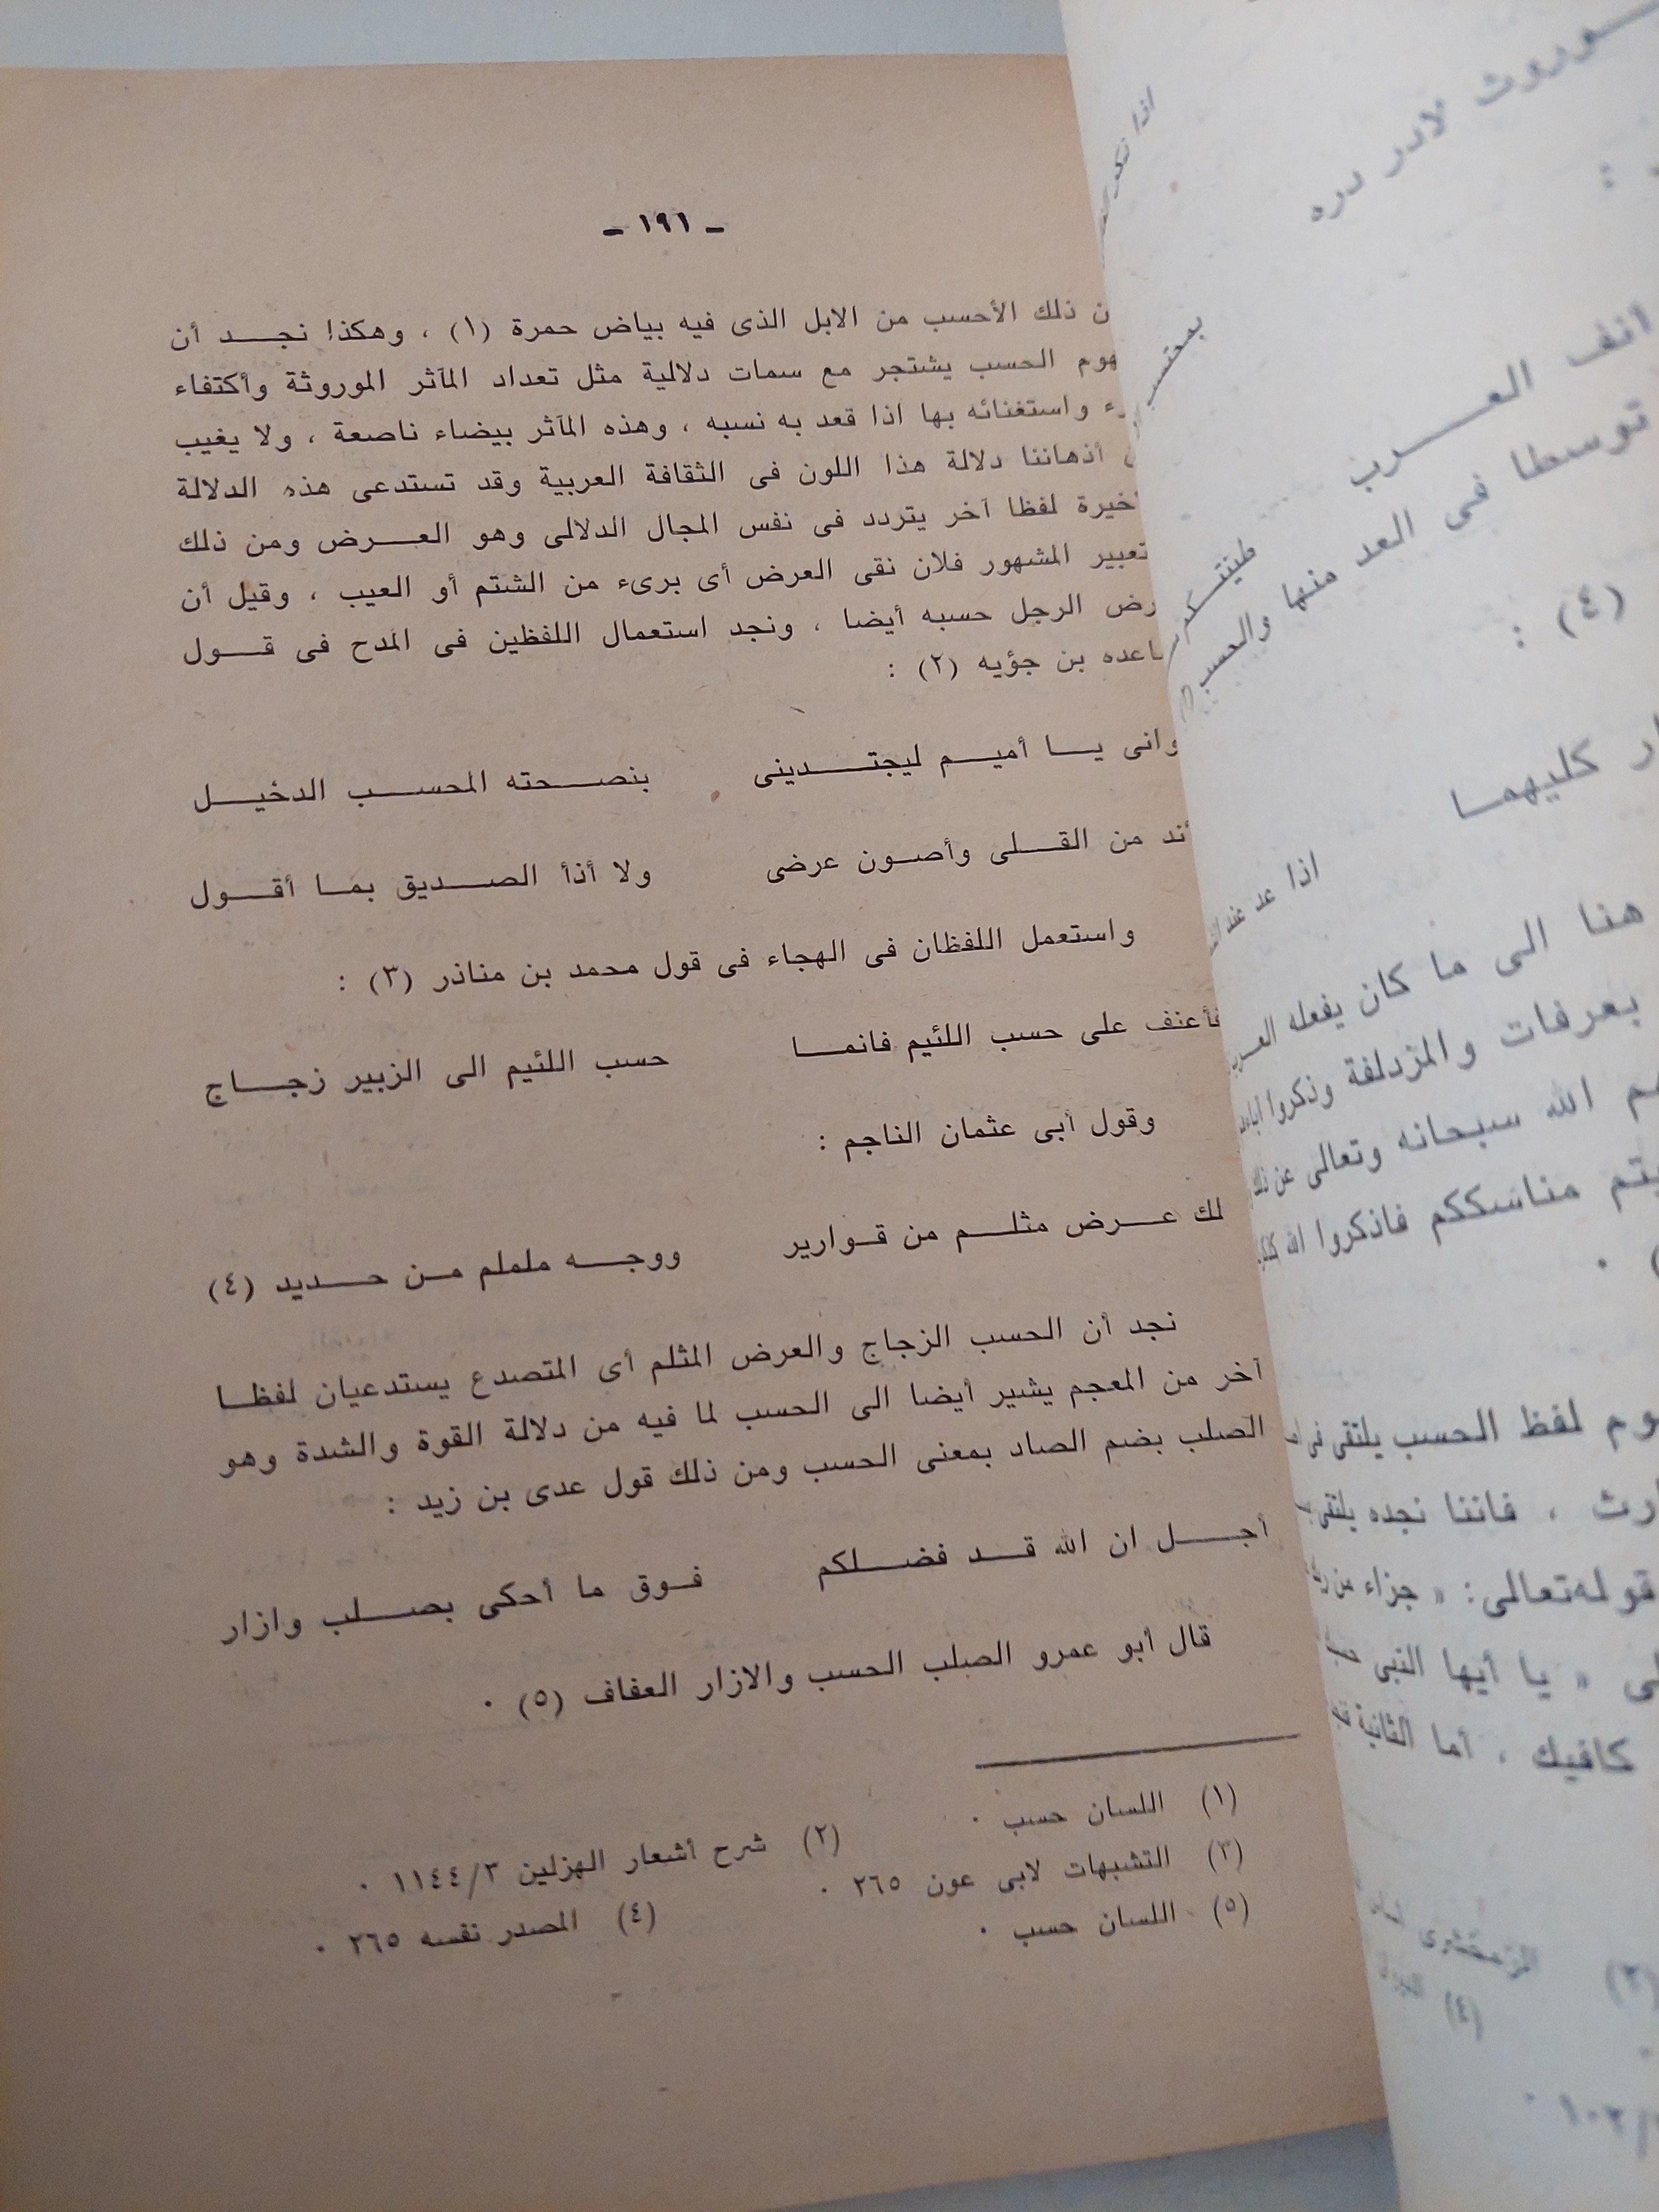 ـ ١٩١ ـ
ذلك الأحسب من الابل الذى فيه بياض حمرة (١) ، وهكذا نجـــد أن
الحسب يشتجر مع سمات دلالية مثل تعداد المآثر الموروثة وأكتفاء
واستغنائه بها اذا قعد به نسبه ، وهذه المآثر بيضاء ناصعة ، ولا يغيب
أذهاننا دلالة هذا اللون فى الثقافة العربية وقد تستدعى هذه الدلالة
لفظا آخر يتردد فى نفس المجال الدلالى وهو العـــرض ومن ذلك
المشهور فلان نقى العرض أى برىء من الشتم أو العيب ، وقيل أن
الرجل حسبه أيضا ، ونجد استعمال اللفظين فى المدح فى قـــول
بن جؤيه (٢) :
وانى يـــا أميـــم ليجتـــدينى بنصـــحته المحســـب الدخيـــل
من القـــلى وأصـون عرضى ولا أذأ الصـــديق بمـا أقـــول
واستعمل اللفظان فى الهجاء فى قول محمد بن مناذر (٣) :
على حسب اللئيم فانمـــا حسب اللئيم الى الزبير زجـــاج
وقول أبى عثمان الناجم :
لك عـــرض مثلـــم من قـوارير ووجـــه ململم مـن حـــديد (٤)
نجد أن الحسب الزجاج والعرض المثلم أى المتصدع يستدعيان لفظـا
آخر من المعجم يشير أيضا الى الحسب لما فيه من دلالة القوة والشدة وهو
الصلب بضم الصاد بمعنى الحسب ومن ذلك قول عدى بن زيد :
أجـــل ان الله قـــد فضـــلكم فـوق ما أحكى بصـــلب وازار
قال أبو عمرو الصلب الحسب والازار العفاف (٥) .
(١) اللسان حسب . (٢) شرح أشعار الهزلين ١١٤٤/٣ .
(٣) التشبهات لابى عون ٢٦٥ . (٤) المصدر نفسه ٢٦٥ .
(٥) اللسان حسب .
لادر دره
انف العـــرب
توسطا فى العد منها والحسب
(٤) :
كليهمـا
اذا عد
هنا الى ما كان يفعله
بعرفات والمزدلفة وذكروا
الله سبحانه وتعالى عن
مناسككم فاذكروا الله
لفظ الحسب يلتقى فى
، فاننا نجده يلتقى
قوله تعالى: « جزاء من
« يا أيها النبى
كافيك ، أما الثانية